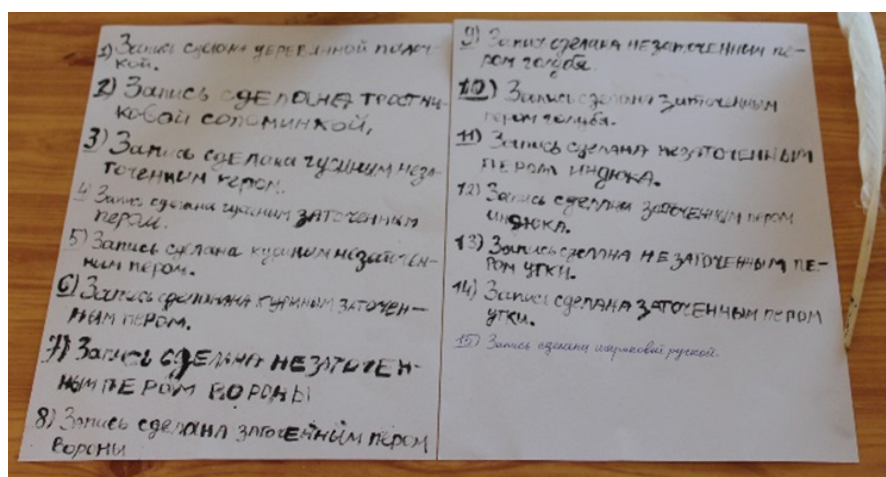 1) Запись сделана деревянной палоч-
кой.
2) Запись сделана тростни-
ковой соломинкой.
3) Запись сделана гусиным неза-
точенным пером.
4) Запись сделана гусиным заточенным
пером.
5) Запись сделана куриным незаточен-
ным пером.
6) Запись сделана куриным заточен-
ным пером.
7) Запись сделана незаточен-
ным пером вороны
8) Запись сделана заточенным пером
вороны
9) Запись сделана незаточенным пе-
ром голубя.
10) Запись сделана заточенным
пером голубя.
11) Запись сделана незаточенным
пером индюка.
12) Запись сделана заточенным пером
индюка.
13) Запись сделана незаточенным пе-
ром утки.
14) Запись сделана заточенным пером
утки.
15) Запись сделана шариковой ручкой.